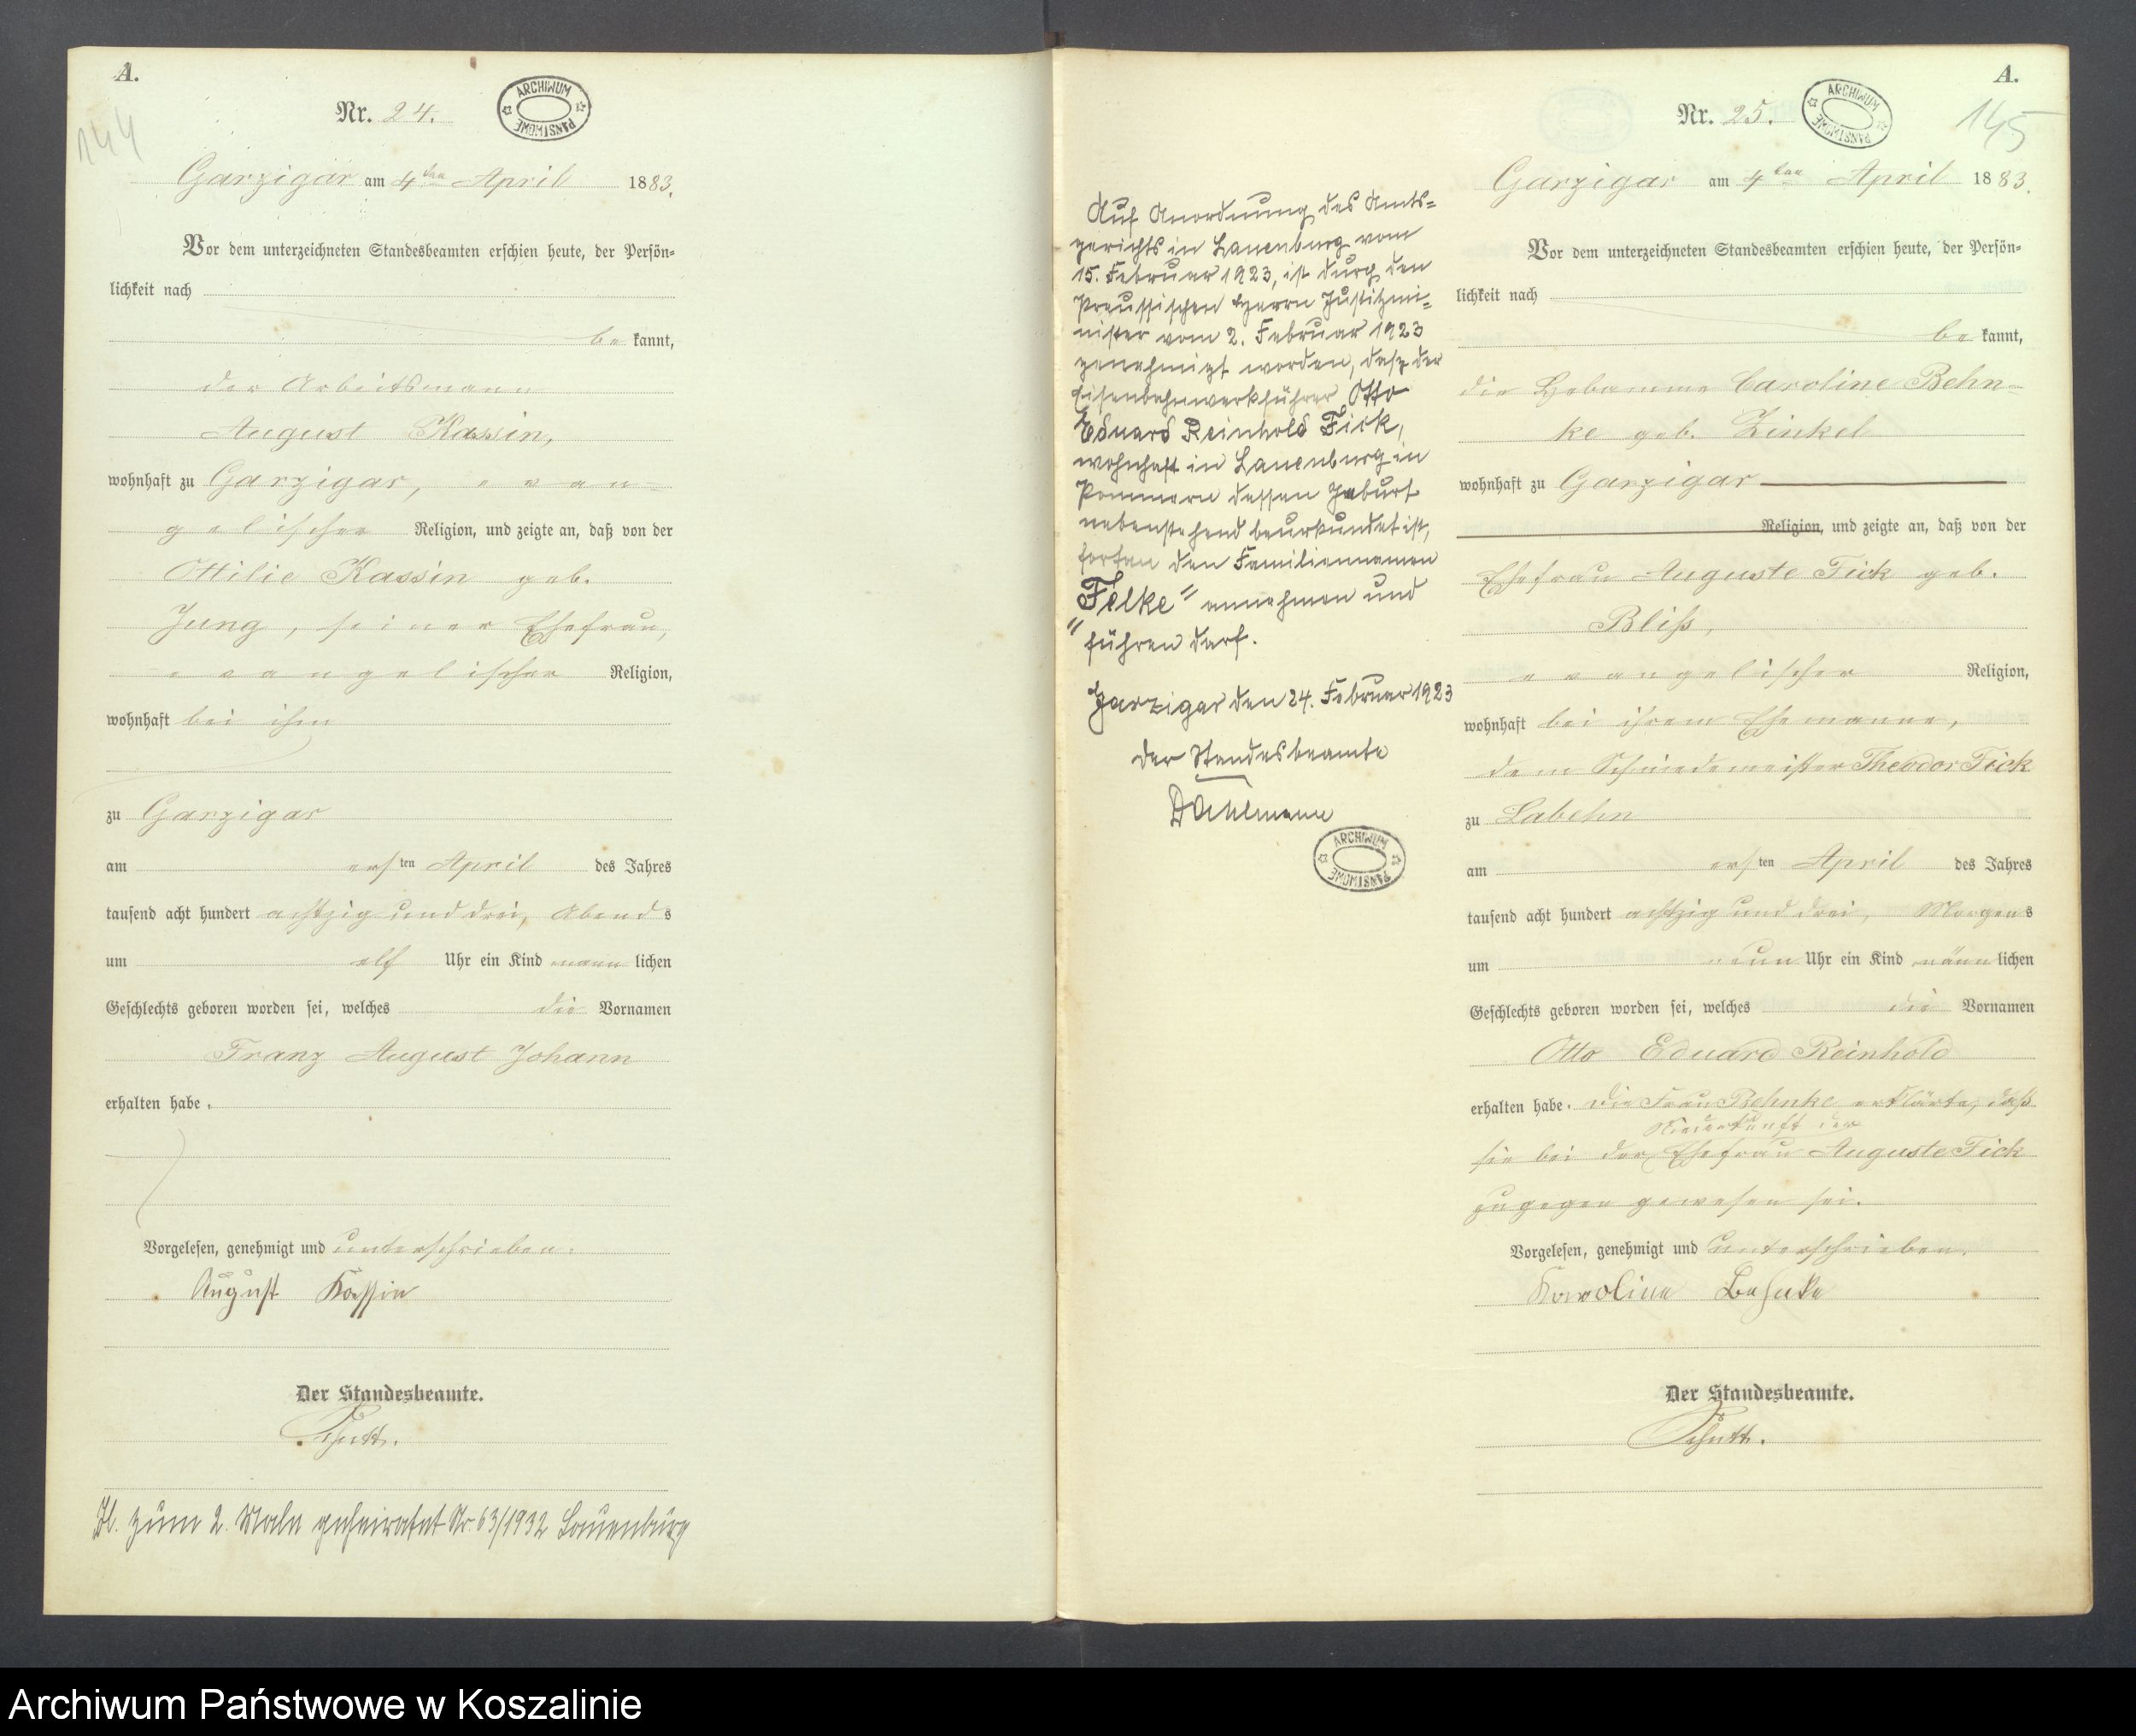 A.
144
Nr. 24.
ARCHIWUM PAŃSTWOWE
Garzigar am 4ten April 1883.
Vor dem unterzeichneten Standesbeamten erschien heute, der Persön=
lichkeit nach
be kannt,
der Arbeitsmann
August Kassin,
wohnhaft zu Garzigar, evan=
gelischer Religion, und zeigte an, daß von der
Ottilie Kassin geb.
Jung, seiner Ehefrau,
evangelischer Religion,
wohnhaft bei ihm
zu Garzigar
am ersten April des Jahres
tausend acht hundert achtzig und drei, Abends
um elf Uhr ein Kind männlichen
Geschlechts geboren worden sei, welches die Vornamen
Franz August Johann
erhalten habe.
Vorgelesen, genehmigt und unterschrieben.
August Kassin
Der Standesbeamte.
zum 2. Male geheiratet Nr. 63/1932 Lauenburg
Auf Anordnung des Amts=
gerichts in Lauenburg vom
15. Februar 1923, ist durch den
Preussischen Herrn Justizmi=
nister vom 2. Februar 1923
genehmigt worden, dasz der
Eisenbahnwerkführer Otto
Eduard Reinhold Fick,
wohnhaft in Lauenburg in
Pommern dessen Geburt
nebenstehend beurkundet ist,
fortan den Familiennamen
"Felke" annehmen und
führen darf.
Garzigar den 24. Februar 1923
Der Standesbeamte
Dahlmann
ARCHIWUM PAŃSTWOWE
A.
145
Nr. 25.
ARCHIWUM PAŃSTWOWE
Garzigar am 4ten April 1883.
Vor dem unterzeichneten Standesbeamten erschien heute, der Persön=
lichkeit nach
be kannt,
die Hebamme Caroline Behn=
ke geb. Zinkel
wohnhaft zu Garzigar
Religion, und zeigte an, daß von der
Ehefrau Auguste Fick geb.
Bliß,
evangelischer Religion,
wohnhaft bei ihrem Ehemanne,
dem Schmiedemeister Theodor Fick
zu Labehn
am ersten April des Jahres
tausend acht hundert achtzig und drei, Morgens
um neun Uhr ein Kind männlichen
Geschlechts geboren worden sei, welches die Vornamen
Otto Eduard Reinhold
erhalten habe. Die Frau Behnke erklärte, daß
Niederkunft der
sie bei der Ehefrau Auguste Fick
zugegen gewesen sei.
Vorgelesen, genehmigt und unterschrieben.
Karoline Behnke
Der Standesbeamte.
Archiwum Państwowe w Koszalinie